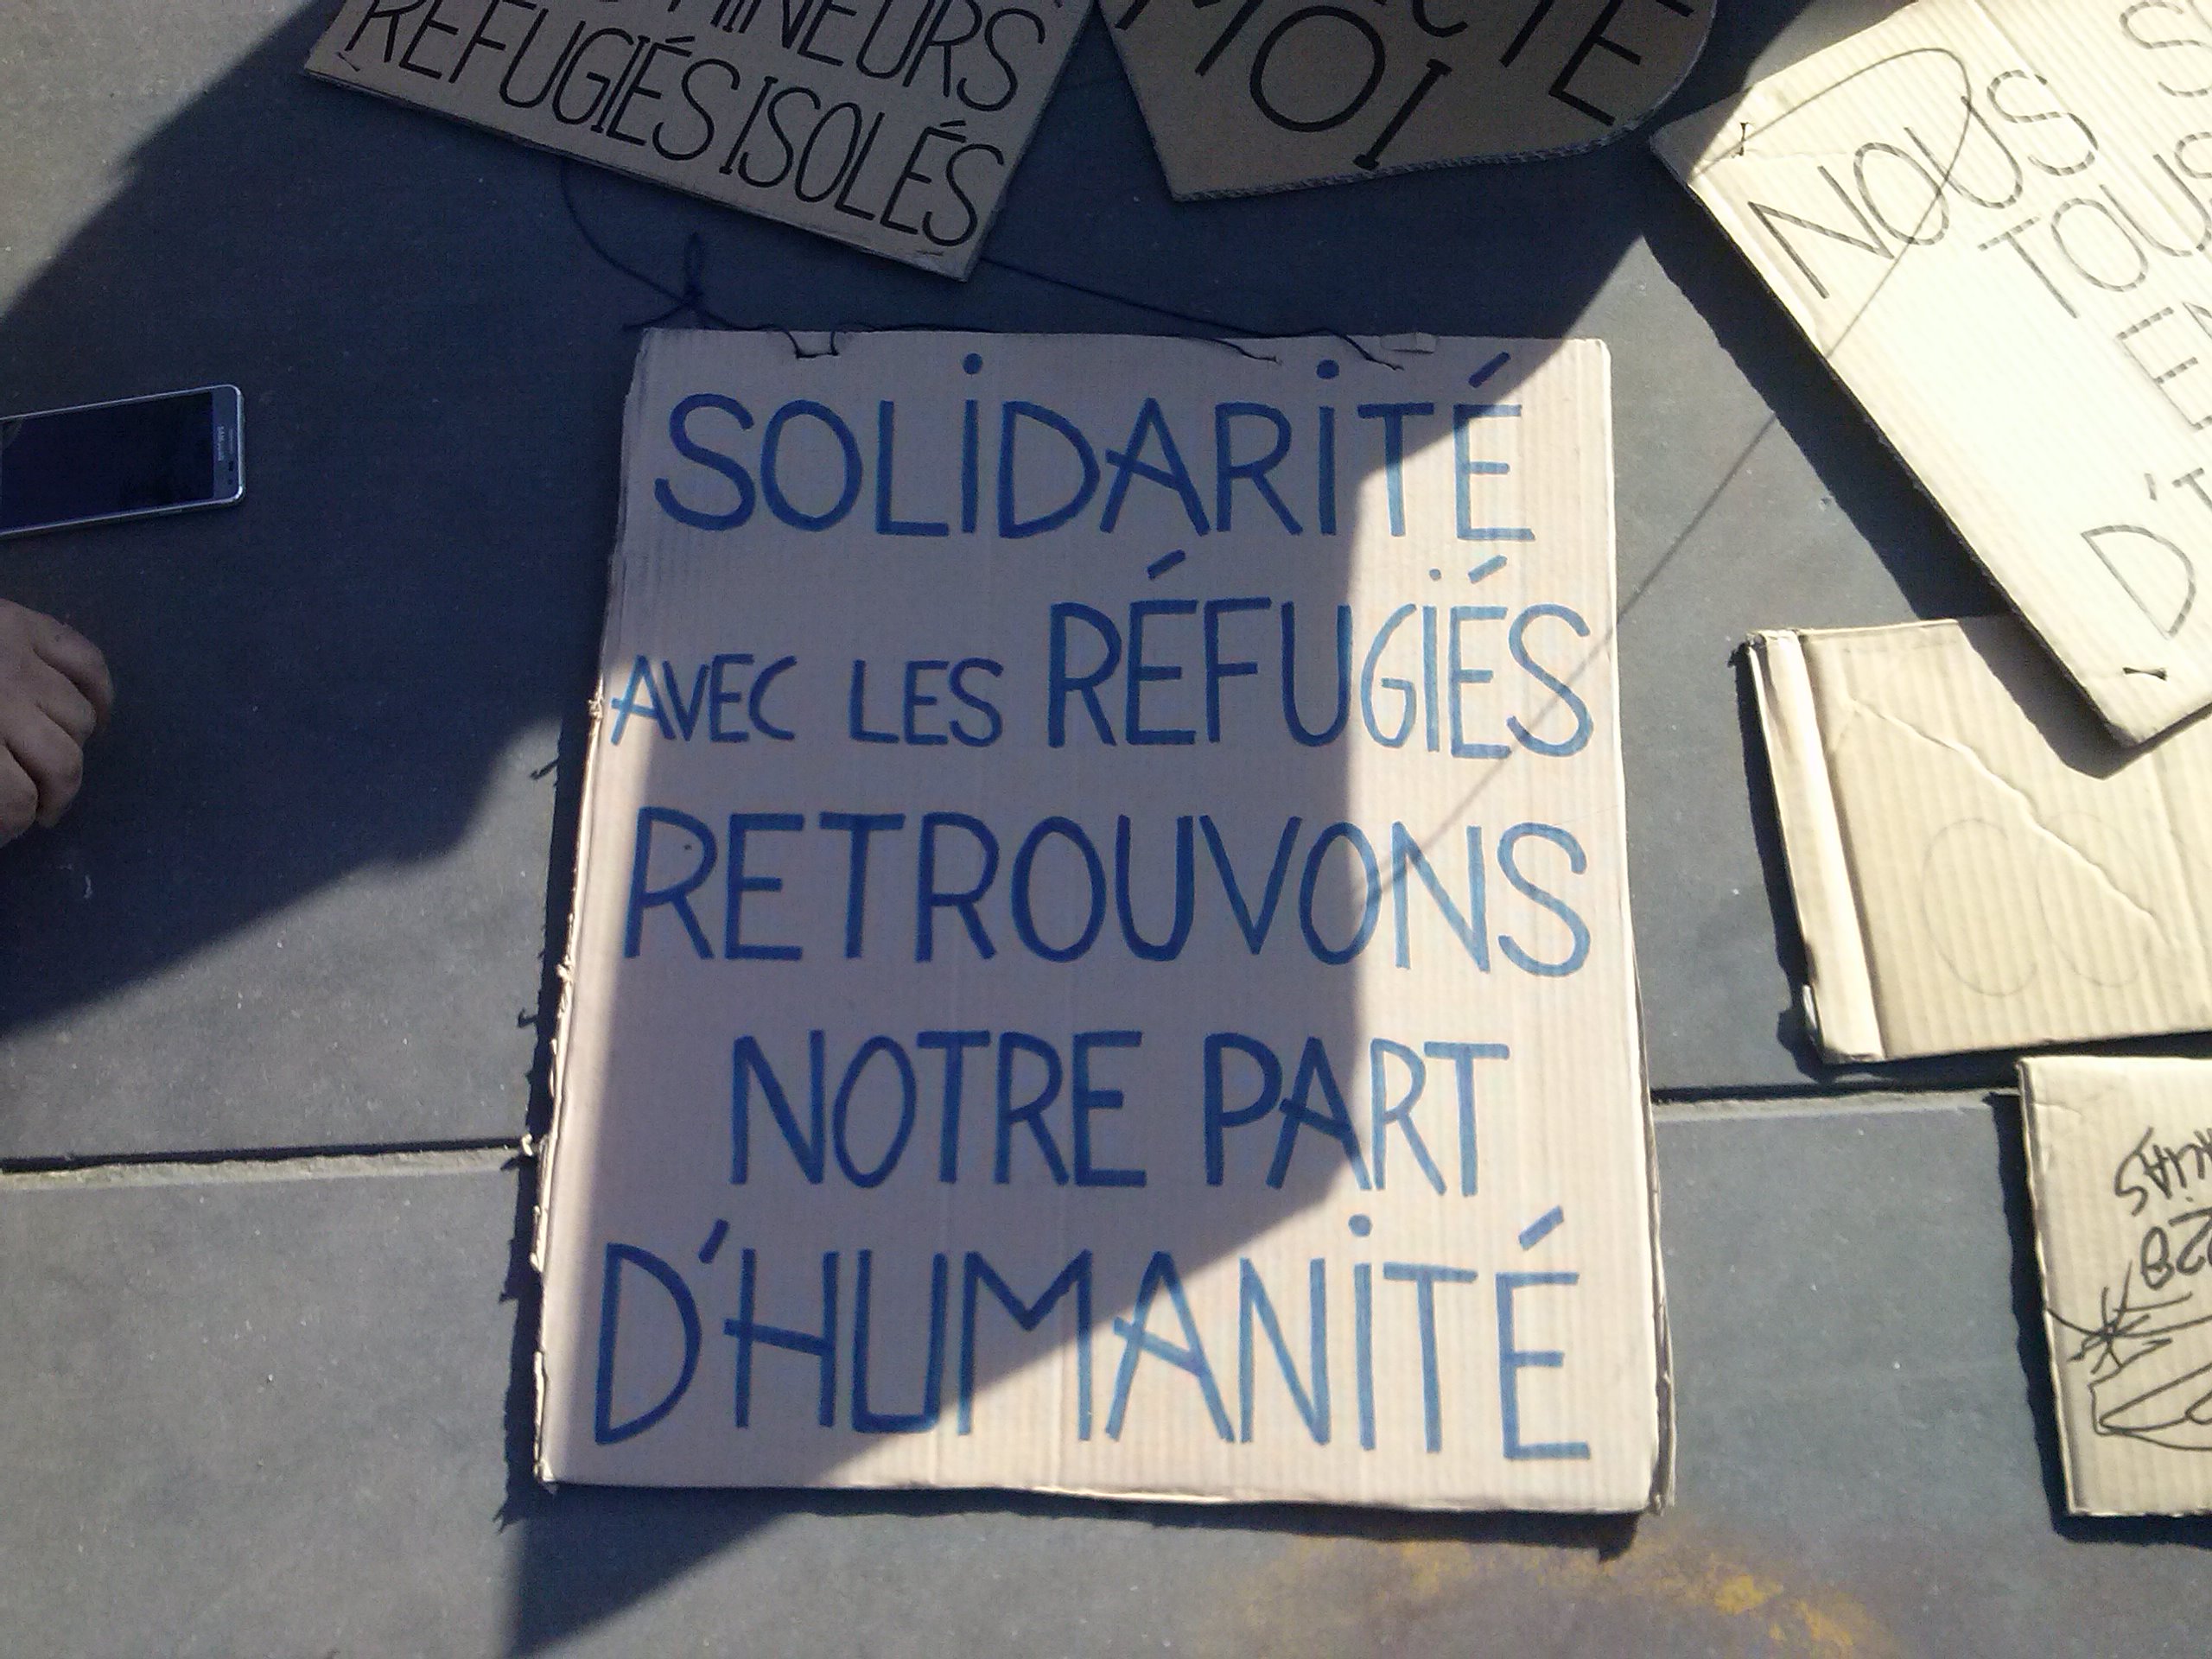 MINEURS
RÉFUGIÉS ISOLÉS
MOI
NOUS
TOUS
SOLIDARITÉ
AVEC LES RÉFUGIÉS
RETROUVONS
NOTRE PART
D'HUMANITÉ
SAMSUNG